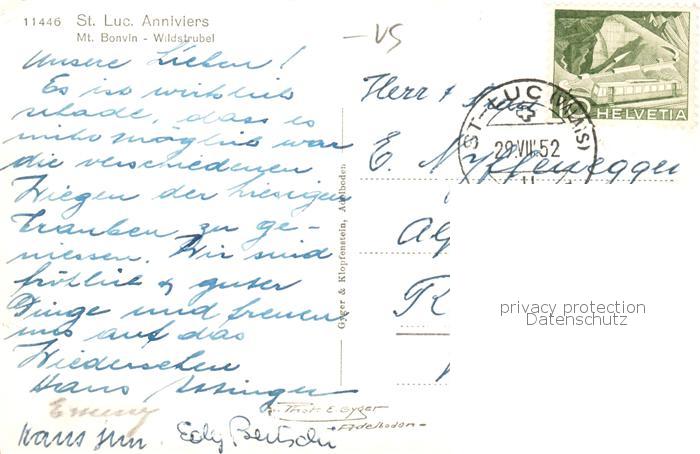 11446 St. Luc. Anniviers
Mt. Bonvin - Wildstrubel
- VS
Unsere Lieben!
Es ist wirklich
schade, dass es
nicht möglich war
die verschiedenen
der hiesigen
Trauben zu ge-
niessen. Wir sind
fröhlich & guter
Dinge und freuen
uns auf das
Wiedersehen
Hans
Hans jun. Edy Bertschi
Gyger & Klopfenstein, Adelboden
Phot. E. Gyger
Adelboden
HELVETIA
ST-LUC (VALAIS)
29.VIII.52
Herr &
E. Nyffenegger
privacy protection
Datenschutz